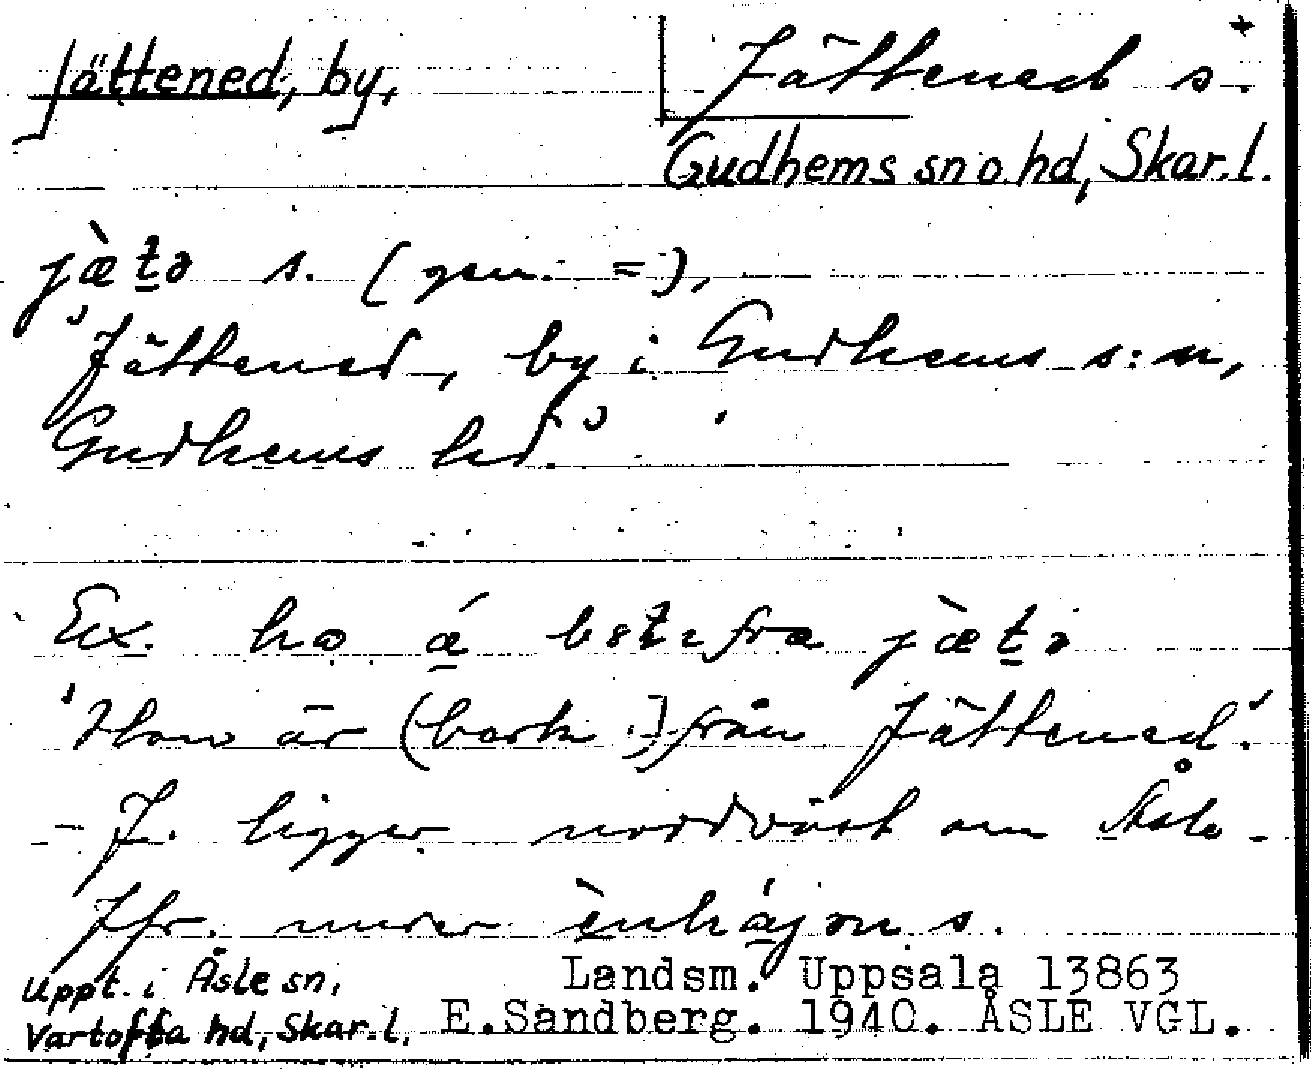 Jättened, by,
Jättened s.
Gudhems sn o. hd, Skar. l.
jæ̀t̠ə s. (gen. =),
'Jättened, by i Gudhems s:n,
Gudhems hd.'
Ex. hɷ ǽ̠ fra jæ̀t̠ə
'Hon är (bort :) från Jättened.'
- J. ligger nordväst om Åsle -
Jfr. under s.
Uppt. i Åsle sn,
Vartofta hd, Skar. l.
Landsm. Uppsala 13863
E.Sandberg. 1940. ÅSLE VGL.